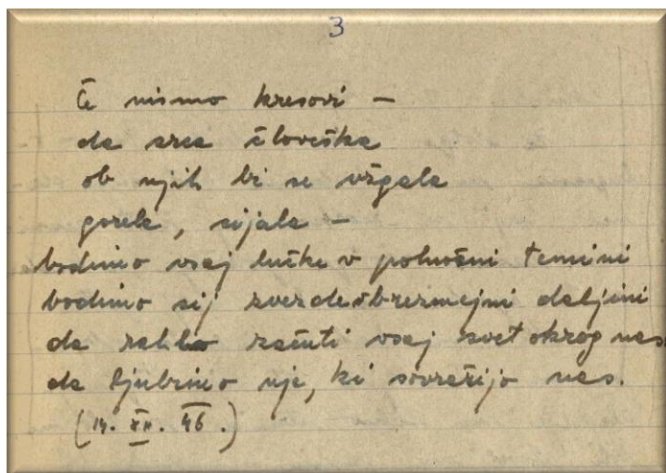 3
Če nismo kresovi –
da srca človeška
ob njih bi se vžgala
gorela, sijala –
bodimo vsaj lučke v polnočni temini
bodimo sij zvezde v brezmejni daljini
da rahlo začuti vsaj svet okrog nas
da ljubimo nje, ki sovražijo nas.
(14. XII. 46.)